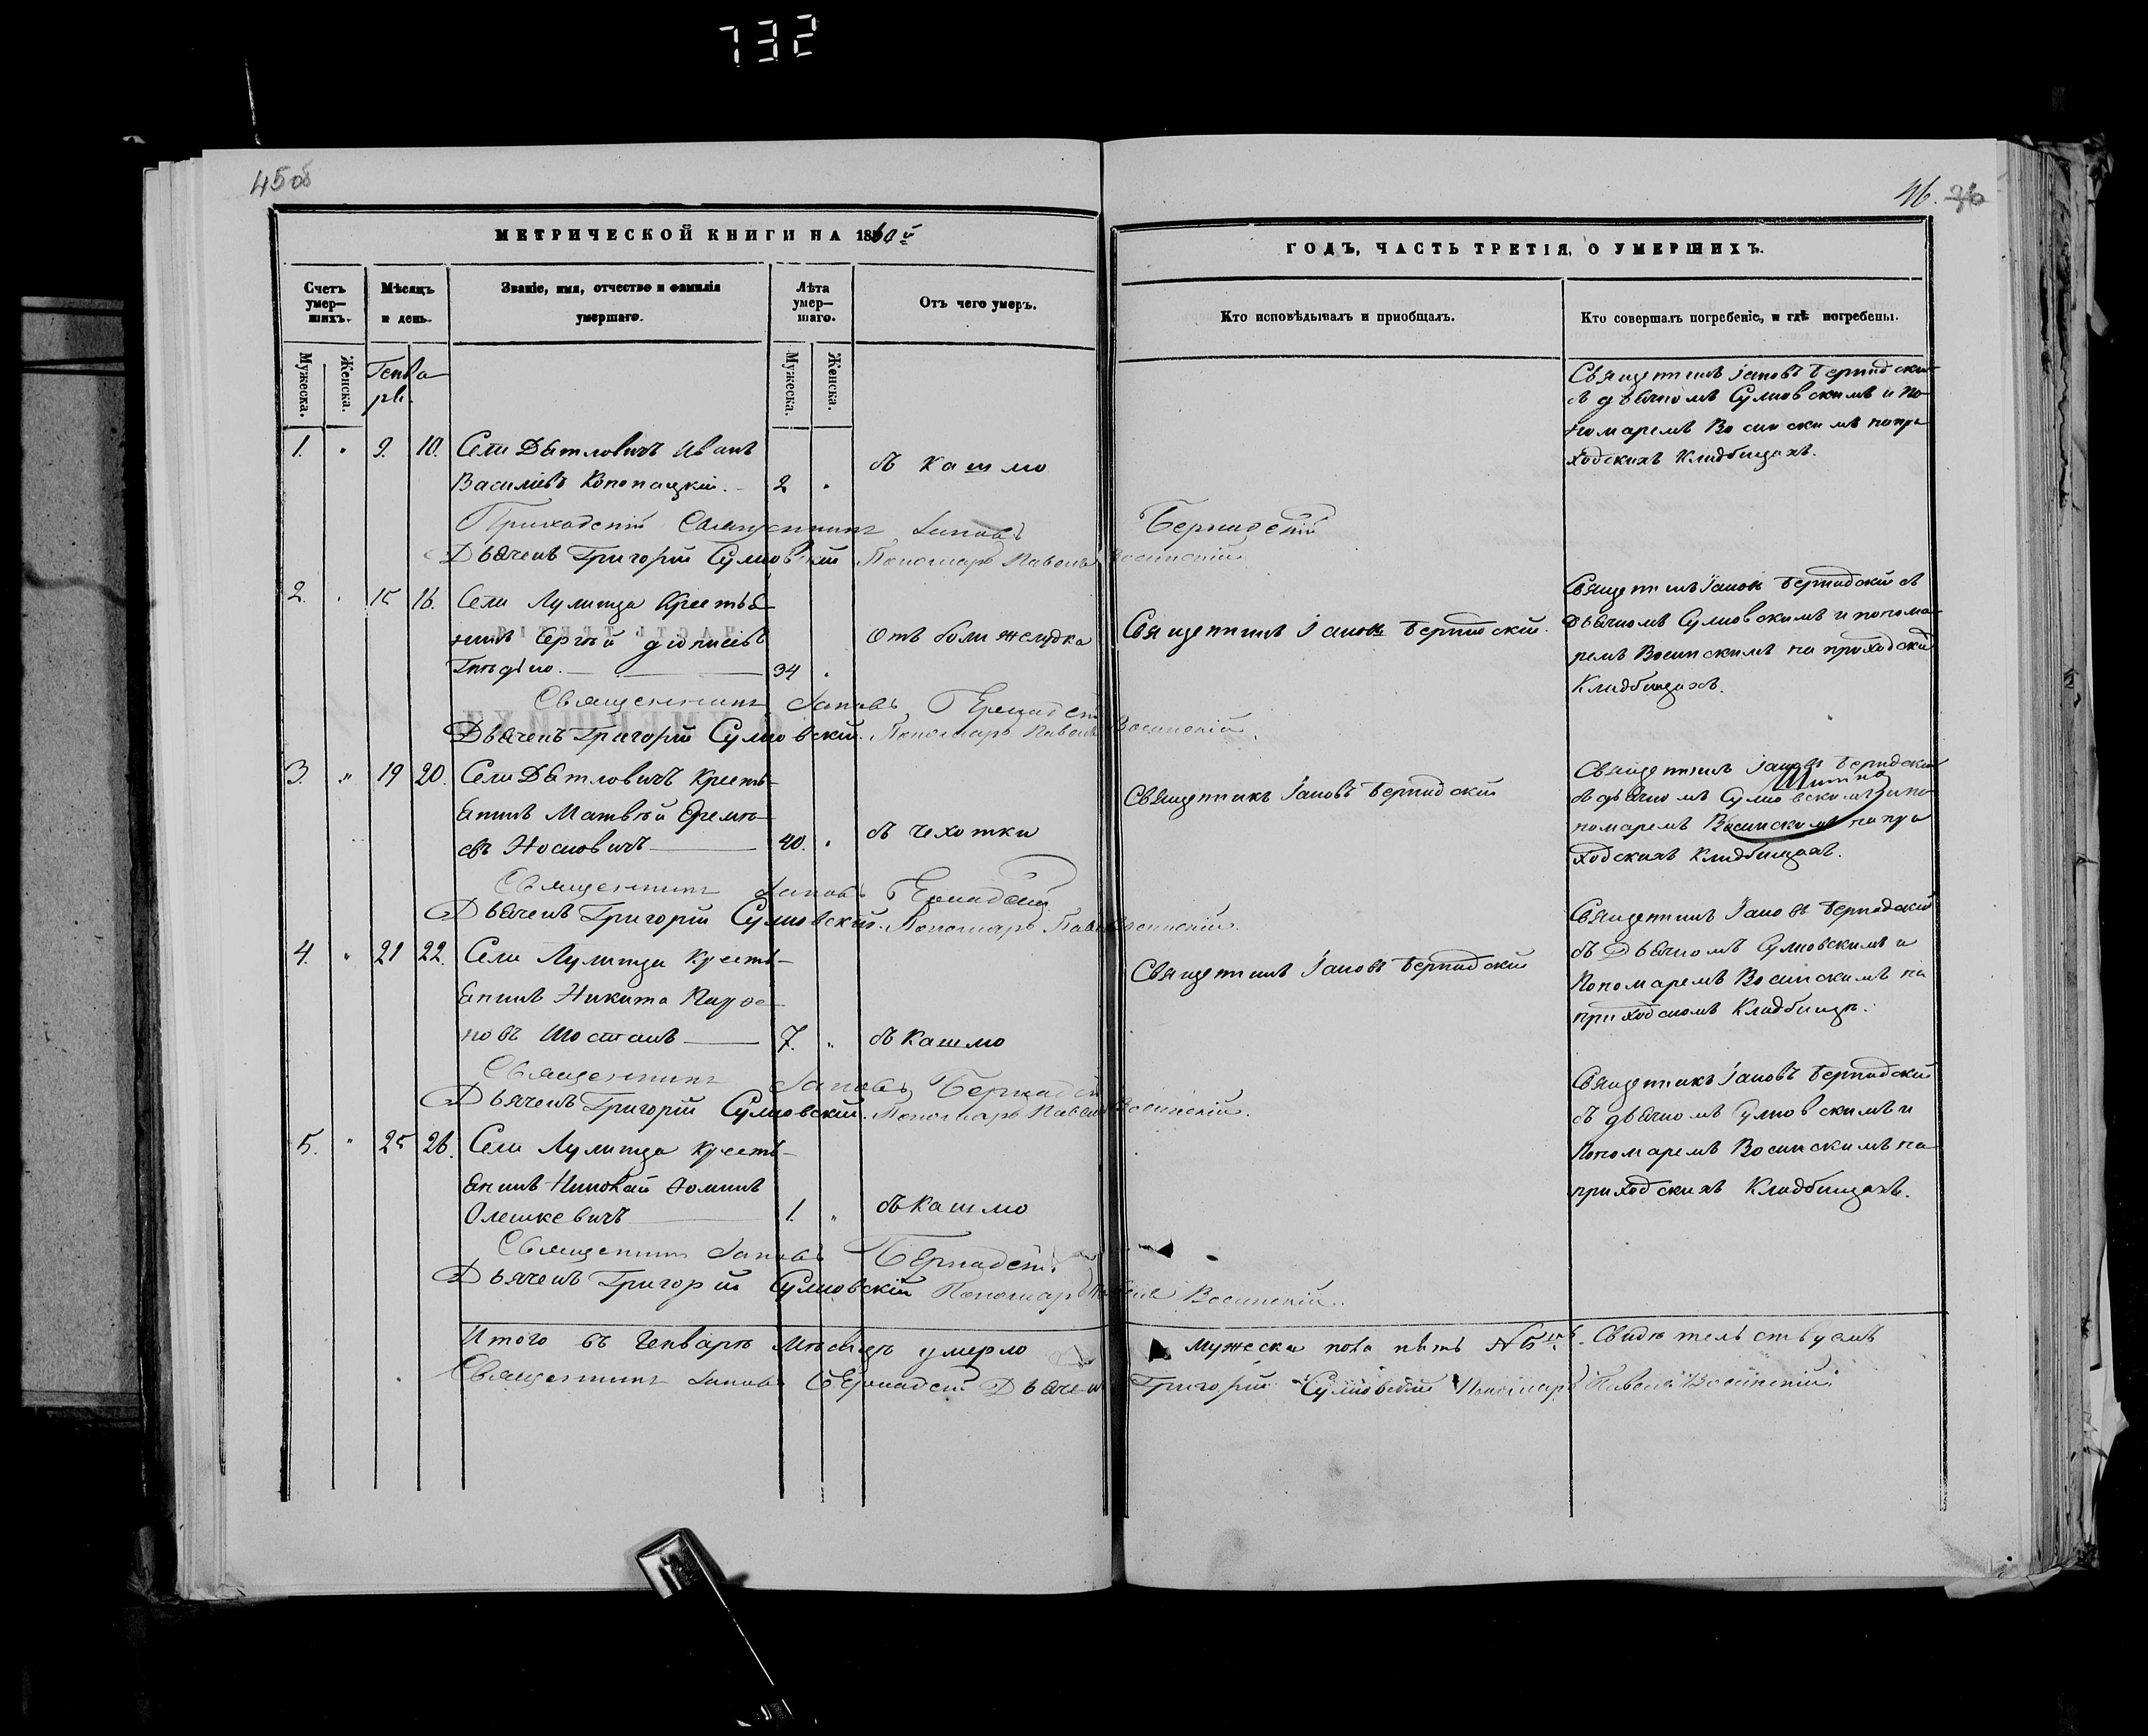 732
45 об
46.
МЕТРИЧЕСКОЙ КНИГИ НА 1860й
ГОДЪ, ЧАСТЬ ТРЕТІЯ, О УМЕРШИХЪ.
Счетъ умер— шихъ.
Мѣсяцъ и день.
Званіе, имя, отчество и фамилія умершаго.
Лѣта умер— шаго.
Отъ чего умеръ.
Кто исповѣдывалъ и приобщалъ.
Кто совершалъ погребеніе, и гдѣ погребены.
Мужеска.
Женска.
Генва
рь.
Мужеска.
Женска.
Священникъ Іаковъ Бернадскій
съ дьячкомъ Сулковскимъ и по-
номаремъ Восинскимъ на при
ходскихъ Кладбищахъ.
1. " 9. 10. Села Дѣтловичъ Иванъ
Василіевъ Копопацкій. 2 "
съ кашлю
Приходскій Священникъ Іаковъ Бернадскій
Дьячекъ Григорій Сулковскій Пономарь Павелъ Восинскій
2. " 15 16. Села Лулинца Кресть
нинъ Сергѣй Діонисіевъ
34 "
Отъ боли желудка
Священникъ Іаковъ Бернадскій.
Священникъ Іаковъ Бернадскій съ
Дьячкомъ Сулковскимъ и понома-
ремъ Восинскимъ на приходски
Кладбищахъ.
Священникъ Іаковъ Бернадскій
Дьячекъ Григорій Сулковскій. Пономарь Павелъ Восинскій.
3. " 19 20. Села Дѣтловичъ Кресть-
янинъ Матвѣй Еремѣ-
евъ Носковичъ 40. "
съ чехотки
Священникъ Іаковъ Бернадскій
Священникъ Іаковъ Бернадскій
съ дьячкомъ Сулковскимъ и по-
номаремъ Восинскимъ на при
ходскихъ Кладбищахъ.
Священникъ Іаковъ Бернадскій
Дьячекъ Григорій Сулковскій. Пономарь Павелъ Восинскій.
4. " 21 22. Села Лулинца Кресть-
янинъ Никита
новъ Шостакъ 7. "
съ кашлю
Священникъ Іаковъ Бернадскій
Священникъ Іаковъ Бернадскій
съ Дьячкомъ Сулковскимъ и
Пономаремъ Восинскимъ на
приходскомъ Кладбищѣ.
Священникъ Іаковъ Бернадскій
Дьячекъ Григорій Сулковскій. Пономарь Павелъ Восинскій.
5. " 25 26. Села Лулинца Кресть-
янинъ Николай Фоминъ
Олешкевичъ 1. "
съ кашлю
Священникъ Іаковъ Бернадскій
съ дьячкомъ Сулковскимъ и
Пономаремъ Восинскимъ на
приходскихъ Кладбищахъ.
Священникъ Іаковъ Бернадскій
Дьячекъ Григорій Сулковскій Пономарь Павелъ Восинскій.
Итого въ Генварѣ Мѣсяцѣ умерло Мужеска пола пять №5ть. Свидѣтельствуемъ
Священникъ Іаковъ Бернадскій Дьячекъ Григорій Сулковскій Пономарь Павелъ Восинскій.